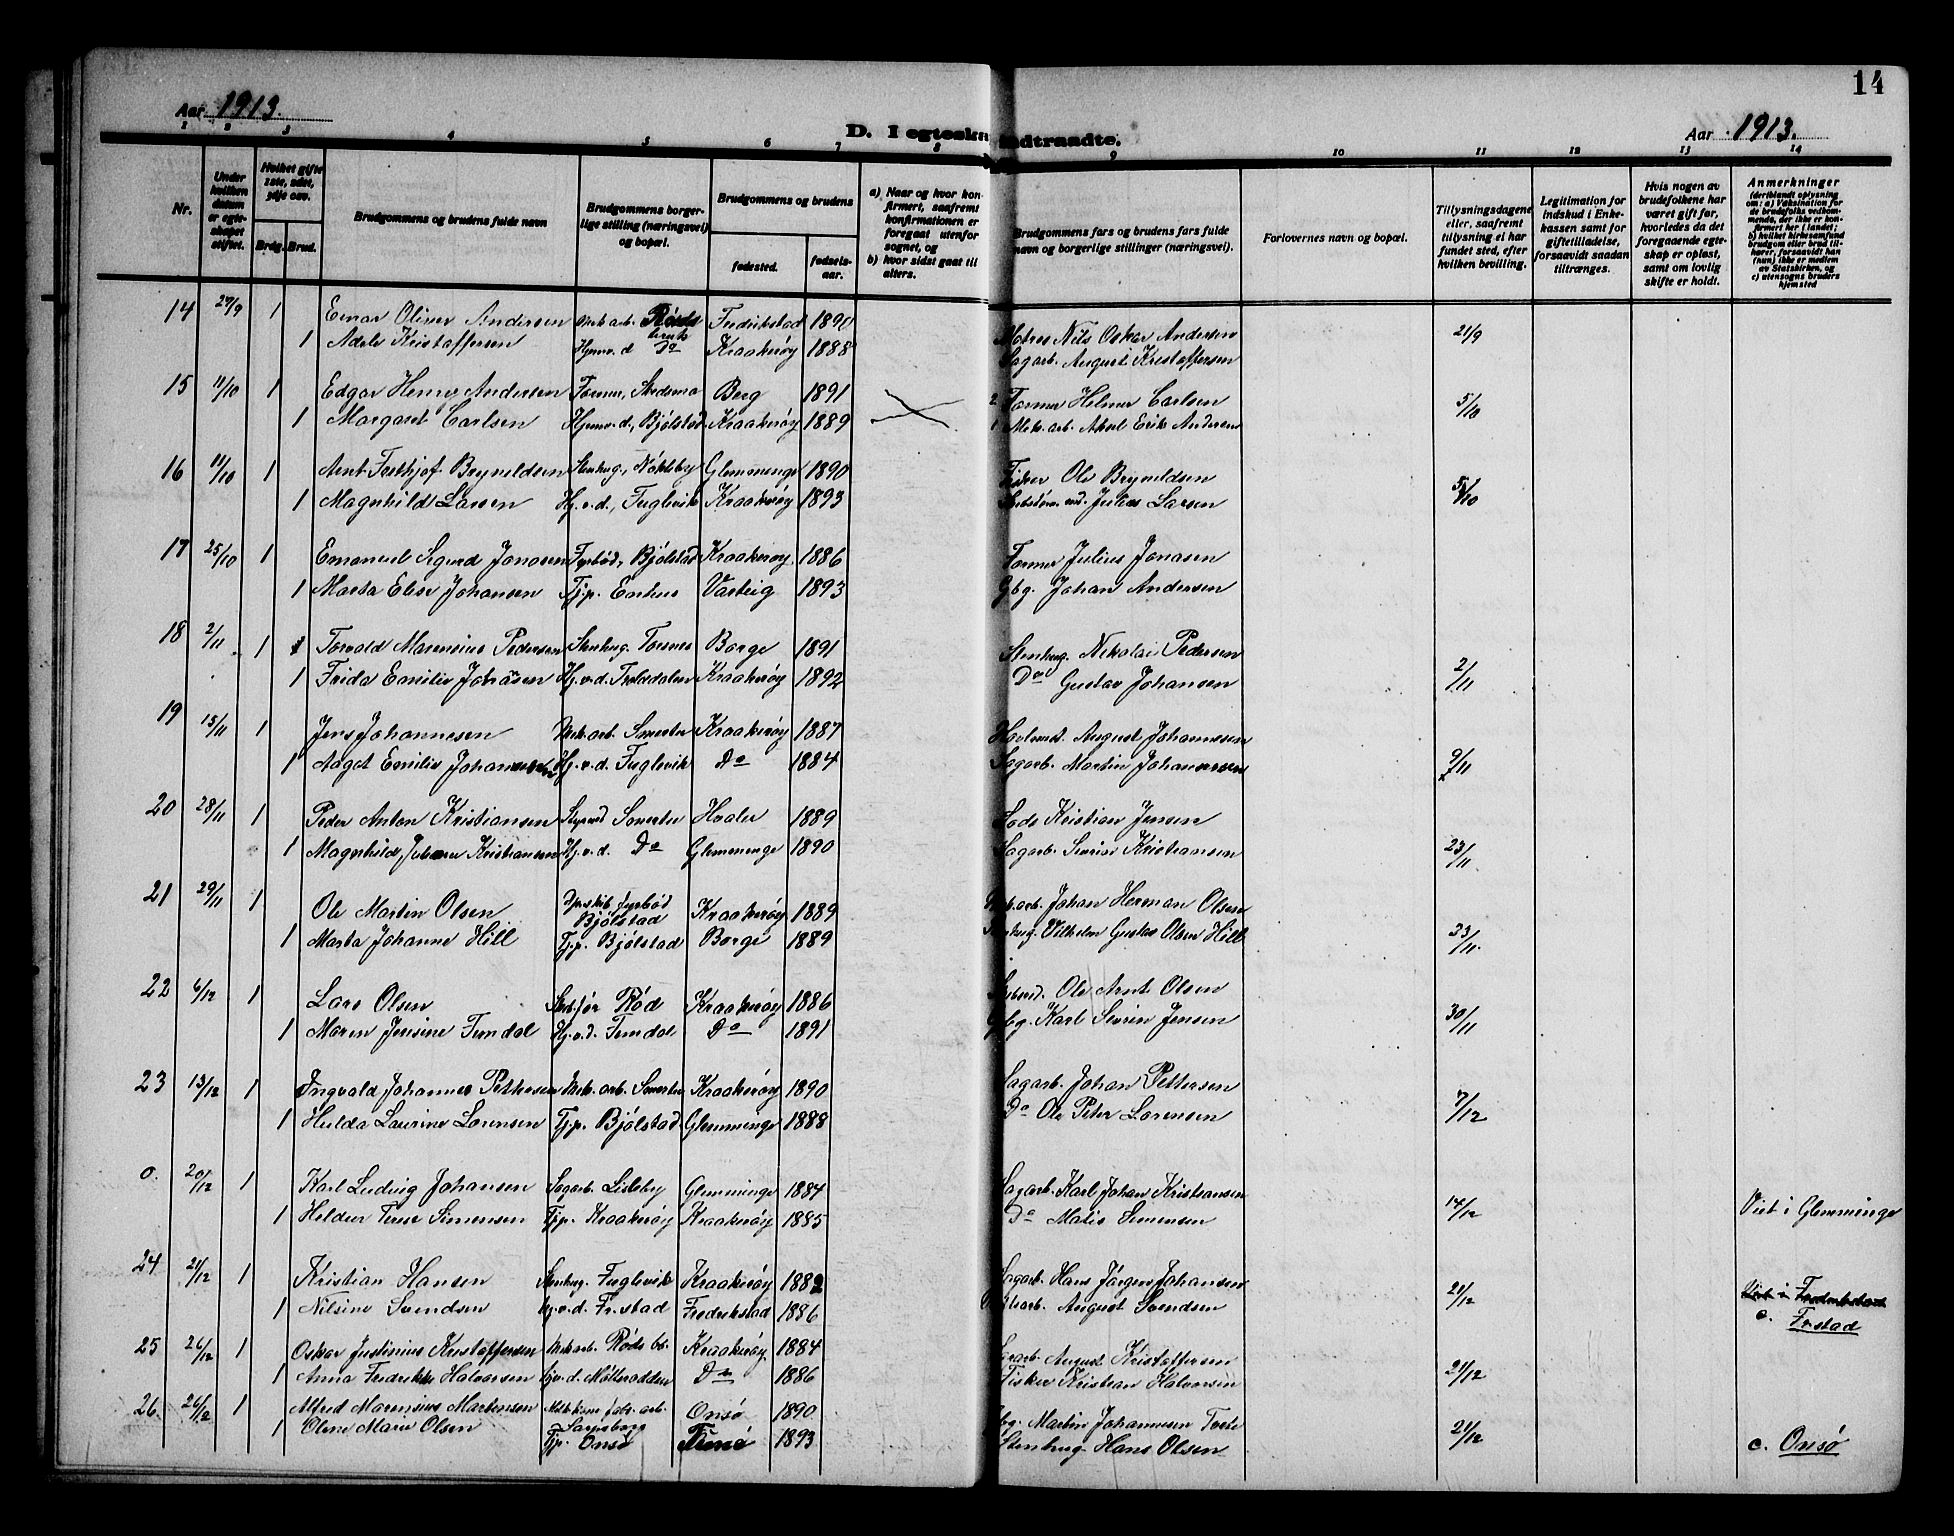 14
Aar 1913. D. I egteska ndtraadte. Aar 1913.
1 2 3 4 5 6 7 8 9 10 11 12 13 14
Nr.
Under hvilken datum er egteskapet stiftet.
Hvilket gifte 1ste, 2det, 3dje osv.
Brdg. Brud.
Brudgommens og brudens fulde navn
Brudgommens borgerlige stilling (næringsvei) og bopæl.
Brudgommens og brudens
fødested. fødselsaar.
a) Naar og hvor konfirmert, saafremt konfirmationen er foregaat utenfor sognet, og
b) hvor sidst gaat til alters.
Brudgommens fars og brudens fars fulde navn og borgerlige stillinger (næringsvei).
Forlovernes navn og bopæl.
Tillysningsdagene eller, saafremt tillysning ei har fundet sted, efter hvilken bevilling.
Legitimation for indskud i Enkekassen samt for giftetilladelse, forsaavidt saadan tiltrænges.
Hvis nogen av brudefolkene har været gift før, hvorledes da det foregaaende egteskap er opløst, samt om lovlig skifte er holdt.
Anmerkninger
(deriblandt oplysning om: a) Vaksination for de brudefolks vedkommende, der ikke er konfirmert her i landet; b) hvilket kirkesamfund brudgom eller brud tilhører, forsaavidt han (hun) ikke er medlem av Statskirken, og c) utensogns bruders hjemsted
14 27/9 1 Einar Oliver Andersen Mek. arb. Røds bruk Fredrikstad 1890 Nils Oskar Andersen 21/9
1 Adele Kristoffersen Hjemv. d Do Kraakerøy 1888 Sagarb. August Kristoffersen
15 11/10 1 Edgar Henry Andersen Former, Berg 1891 2 Former Helmer Carlsen 5/10
1 Margaret Carlsen Hjemv. d., Bjølstad Kraakerøy 1889 1 Mek. arb. Axel Erik Andersen
16 11/10 1 Arnt Forthjof Bryneldsen Stenhug., Nøkleby Glemminge 1890 Fisker Ole Bryneldsen 5/10
1 Magnhild Larsen Hj. v. d., Fuglevik Kraakerøy 1893 Julius Larsen
17 25/10 1 Emanuel Sigurd Jonasen Fyrbød, Bjølstad Kraakerøy 1886 Former Julius Jonasen
1 Marta Elise Johansen Tj.p. Enhus Varteig 1893 Gbg. Johan Andersen
18 2/11 1 Torvald Marensius Pedersen Stenhug. Torsnes Borge 1891 Stenhug. Nikolai Pedersen 2/11
1 Frida Emilie Johansen Hj. v. d. Trolddalen Kraakerøy 1892 Do Gustav Johansen
19 15/11 1 Jens Johannesen Mek. arb. Smertu Kraakerøy 1887 August Johannesen 9/11
1 Aagot Emilie Johannesen Hj. v. d. Fuglevik Do 1884 Sagarb. Martin Johannesen
20 28/11 1 Peder Anton Kristiansen Styrmd Smertu Hvaler 1889 Lods Kristian Jensen 23/11
1 Magnhild Kristiansen Hj. v. d. Do Glemminge 1890 Sagarb. Severin Kristiansen
21 29/11 1 Ole Martin Olsen Dpskib. fyrbød Bjølstad Kraakerøy 1889 Mek. arb. Johan Herman Olsen 23/11
1 Marta Johanne Hill Tj.p. Bjølstad Borge 1889 Stenhug. Vilhelm Gustav Olsen Hill
22 6/12 1 Lars Olsen Rød Kraakerøy 1886 Ole Arnt Olsen 30/11
1 Maren Jensine Femdal Hj. v. d. Femdal Do 1891 Gbg. Karl Severin Jensen
23 13/12 1 Ingvald Johannes Pettersen Mek. arb. Smertu Kraakerøy 1890 Sagarb. Johan Pettersen 7/12
1 Hulda Laurine Lorensen Tj.p. Bjølstad Glemminge 1888 Do Ole Peter Lorensen
0. 20/12 1 Karl Ludvig Johansen Sagarb. Lisleby Glemminge 1884 Sagarb. Karl Johan Kristiansen 14/12 Viet i Glemminge
1 Simensen Tj.p. Kraakerøy Kraakerøy 1885 Do Simensen
24 21/12 1 Kristian Hansen Stenhug. Fuglevik Kraakerøy 1882 Sagarb. Hans Jørgen Johansen 21/12 Viet i Fredrikstad
1 Nilsine Svendsen Hj. v. d. Fr.stad Fredrikstad 1886 August Svendsen c. Frstad
25 26/12 1 Oskar Justinius Kristoffersen Mek. arb. Røds br. Kraakerøy 1884 Sagarb. August Kristoffersen 21/12
1 Anna Fredrikke Halvorsen Hj. v. d. Møllerodden Do 1886 Fisker Kristian Halvorsen
26. 26/12 1 Alfred Marensius Martensen Sarpsborg Onsø 1890 Gbg. Martin Johannesen 21/12
1 Olene Marie Olsen Tjp. Onsø 1893 Stenhug. Hans Olsen c. Onsø